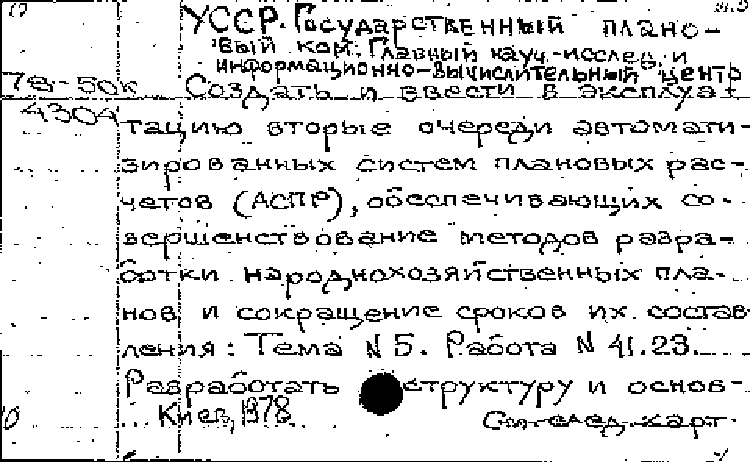 УССР. Государственный плано-
вый ком. Главный науч.-исслед. и
информационно-вычислительный центр
78-50к Создать и ввести в эксплуа-
4304 тацию вторые очереди автомати-
зированных систем плановых рас-
четов (АСПР), обеспечивающих со-
вершенствование методов разра-
ботки народнохозяйственных пла-
нов и сокращение сроков их состав
ления: Тема N 5. Работа N 41.23.
Разработать структуру и основ-
Киев, 1978 См. след. карт.